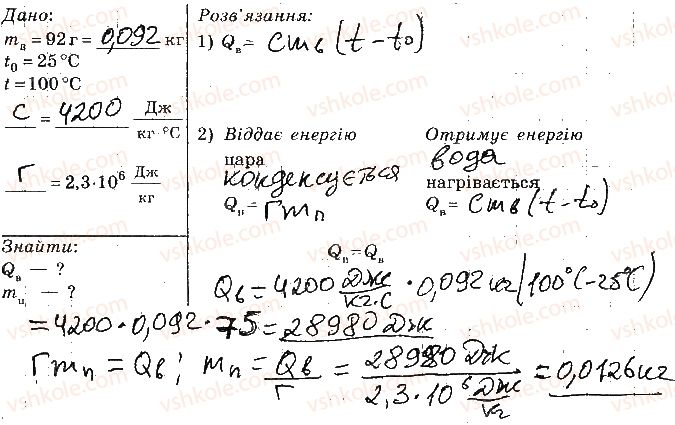 Дано:
m_в = 92 г = 0,092 кг
t₀ = 25 °C
t = 100 °C
C = 4200 Дж/кг °C
r = 2,3·10⁶ Дж/кг
Знайти:
Q_в — ?
m_ц — ?
Розв'язання:
1) Q_в = cm_в (t – t₀)
2) Віддає енергію Отримує енергію
цара вода
конденсується нагрівається
Q_п = rm_п Q_в = cm_в (t – t₀)
Q_п = Q_в
Q_в = 4200 Дж/кг·C · 0,092 кг (100°C – 25°C)
= 4200 · 0,092 · 75 = 28980 Дж
rm_п = Q_в ; m_п = Q_в/r = 28980 Дж/2,3·10⁶ Дж/кг = 0,0126 кг
vshkole.com